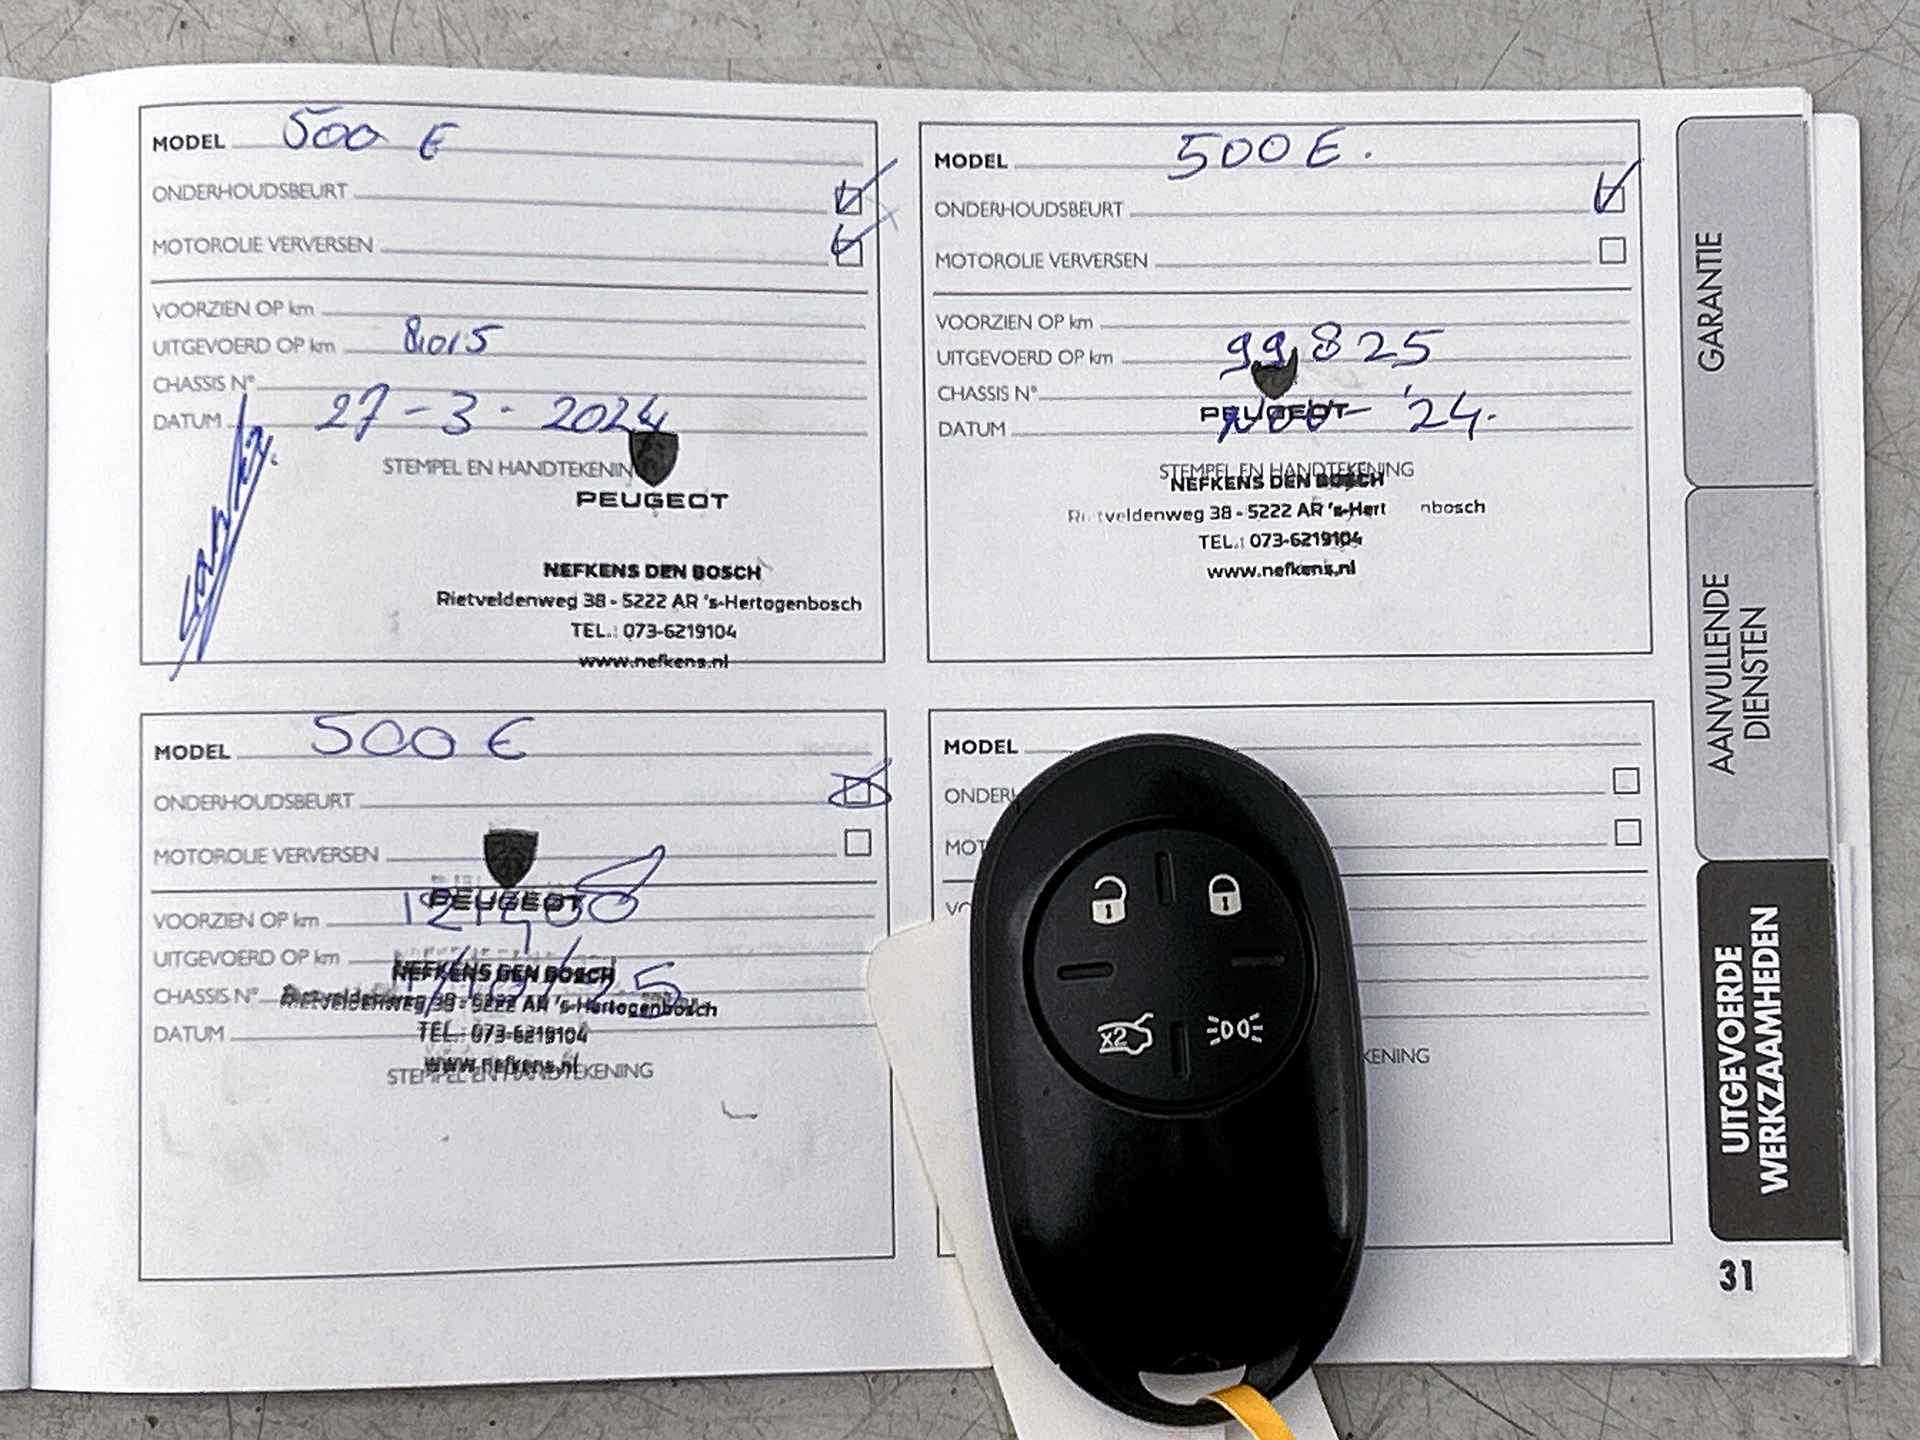 MODEL 500 E
ONDERHOUDSBEURT
MOTOROLIE VERVERSEN
VOORZIEN OP km
UITGEVOERD OP km 8015
CHASSIS N°
DATUM 27-3-2024
STEMPEL EN HANDTEKENIN
PEUGEOT
NEFKENS DEN BOSCH
Rietveldenweg 38 - 5222 AR 's-Hertogenbosch
TEL.: 073-6219104
www.nefkens.nl
MODEL 500 E.
ONDERHOUDSBEURT
MOTOROLIE VERVERSEN
VOORZIEN OP km
UITGEVOERD OP km 99825
CHASSIS N°
PEUGEOT
DATUM '24.
STEMPEL EN HANDTEKENING
NEFKENS DEN BOSCH
38 - 5222 AR 's-Hert nbosch
TEL.: 073-6219104
www.nefkens.nl
MODEL 500 E
ONDERHOUDSBEURT
MOTOROLIE VERVERSEN
PEUGEOT
VOORZIEN OP km
UITGEVOERD OP km
NEFKENS DEN BOSCH
CHASSIS N°
Rietveldenweg 38 - 5222 AR 's-Hertogenbosch
DATUM
TEL.: 073-6219104
www.nefkens.nl
STEMPEL EN HANDTEKENING
MODEL
ONDER
MOT
VO
KENING
x2
GARANTIE
AANVULLENDE
DIENSTEN
UITGEVOERDE
WERKZAAMHEDEN
31